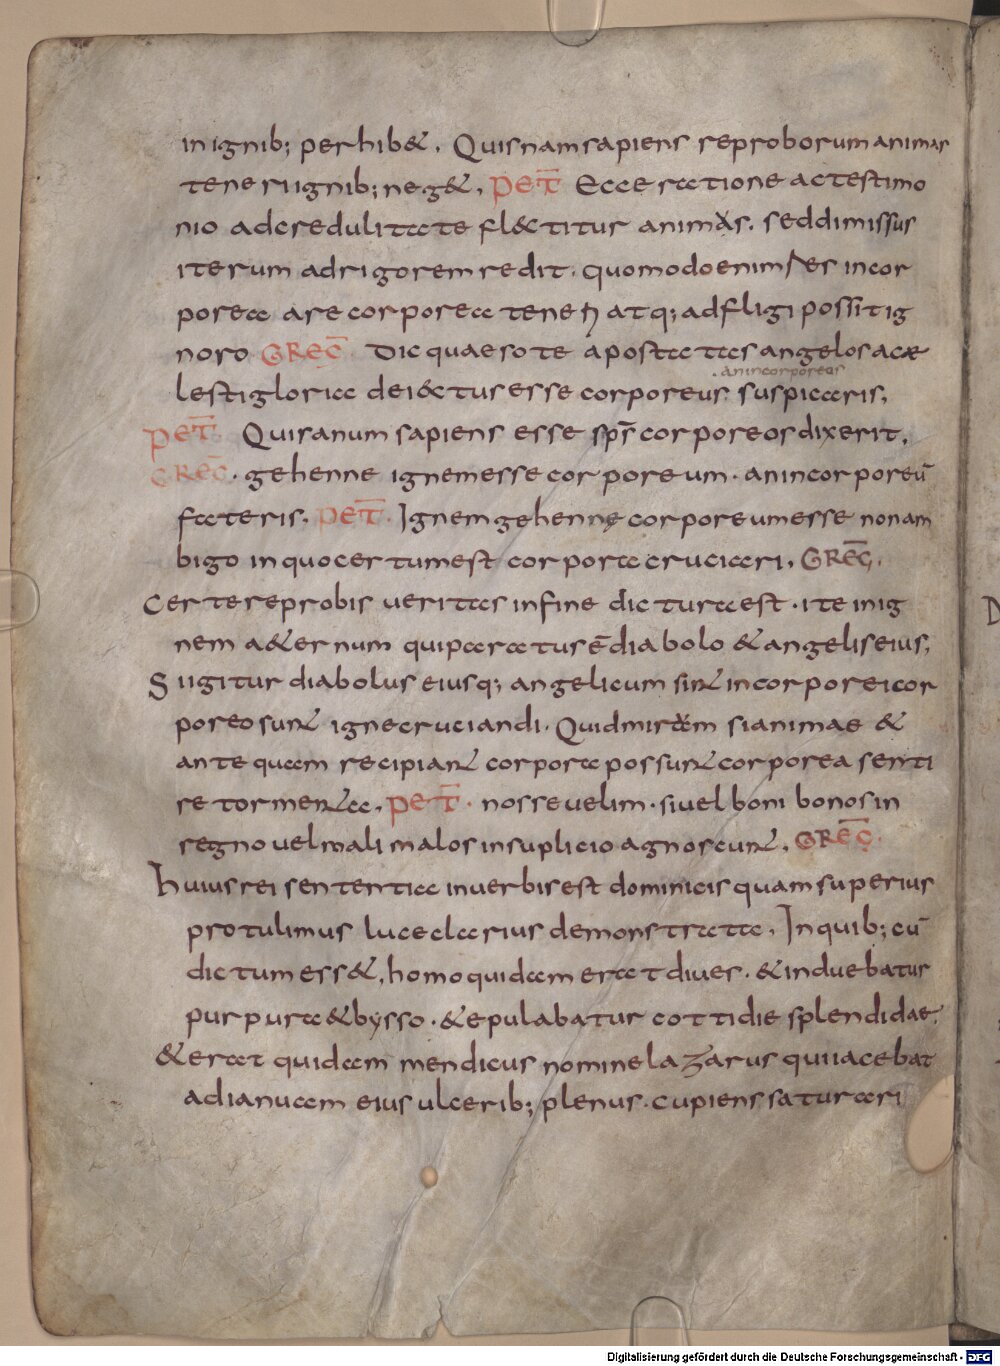 in ignib; perhib&. Quisnam sapiens reproborum animas
teneri ignib; neg&. PET̄ Ecce ratione ac testimo
nio ad credulitate fl&titur animus. sed dimissus
iterum ad rigorem redit. quomodo enim res incor
porea a re corporea teneri atq; adfligi possit ig
noro GREḠ. Dic quaeso te apostatas angelos a cae
lesti gloria dei&tus esse corporeus suspicaris,
an incorporeos
PET̄. Quis anum sapiens esse sp̄s corporeos dixerit.
GREḠ. gehenne ignem esse corporeum. an incorporeū
fateris. PET̄. Ignem gehenne corporeum esse non am
bigo in quo certum est corpora cruciari. GREḠ.
Certe reprobis ueritas in fine dictura est. ite in ig
nem a&ernum qui paratus ē diabolo & angelis eius,
Si igitur diabolus eiusq; angeli cum sint incorporei cor
poreo sunt igne cruciandi. Quid mirum si animae &
ante quam recipiant corpora possunt corporea senti
re tormenta. PET̄. nosse uelim. si uel boni bonos in
regno uel mali malos in suplicio agnoscunt. GREḠ.
Huius rei sententia in uerbis est dominicis quam superius
protulimus luce clarius demonstrata. In quib; cū
dictum ess&, homo quidam erat diues. & induebatur
purpura & bysso. & epulabatur cottidie splendidae.
& erat quidam mendicus nomine lazarus qui iacebat
ad ianuam eius ulcerib; plenus. cupiens saturari
Digitalisierung gefördert durch die Deutsche Forschungsgemeinschaft - DFG